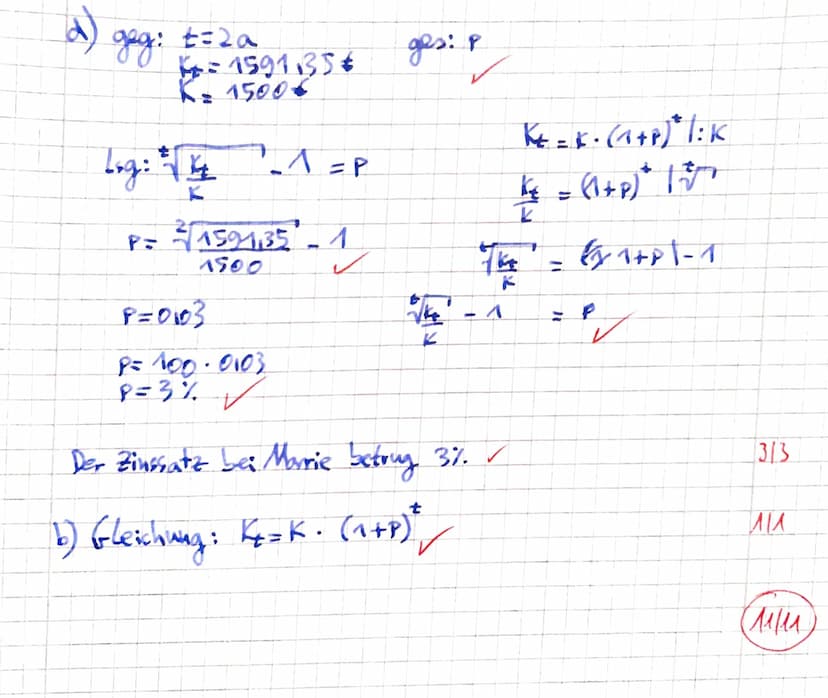 d) geg: t=2a ges: p
Kt = 1591,35€
K = 1500€
Kt = K · (1+p)^t |: K
Lsg: ^t√(Kt/K) - 1 = p
Kt/K = (1+p)^t | ^t√
p = ^2√(1591,35/1500) - 1
^t√(Kt/K) = 1+p | -1
p = 0,03
^t√(Kt/K) - 1 = p
p = 100 · 0,03
p = 3%
Der Zinssatz bei Marrie betrug 3%. 3/3
b) Gleichung: Kt = K · (1+p)^t 1/1
11/11